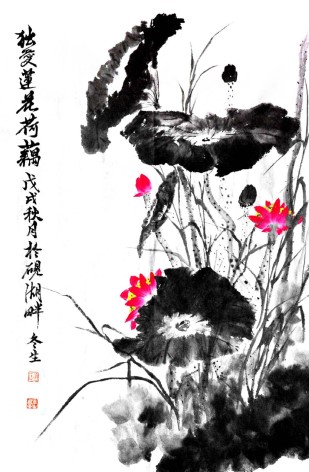 独爱莲花荷藕戊戌秋月於砚湖畔冬生